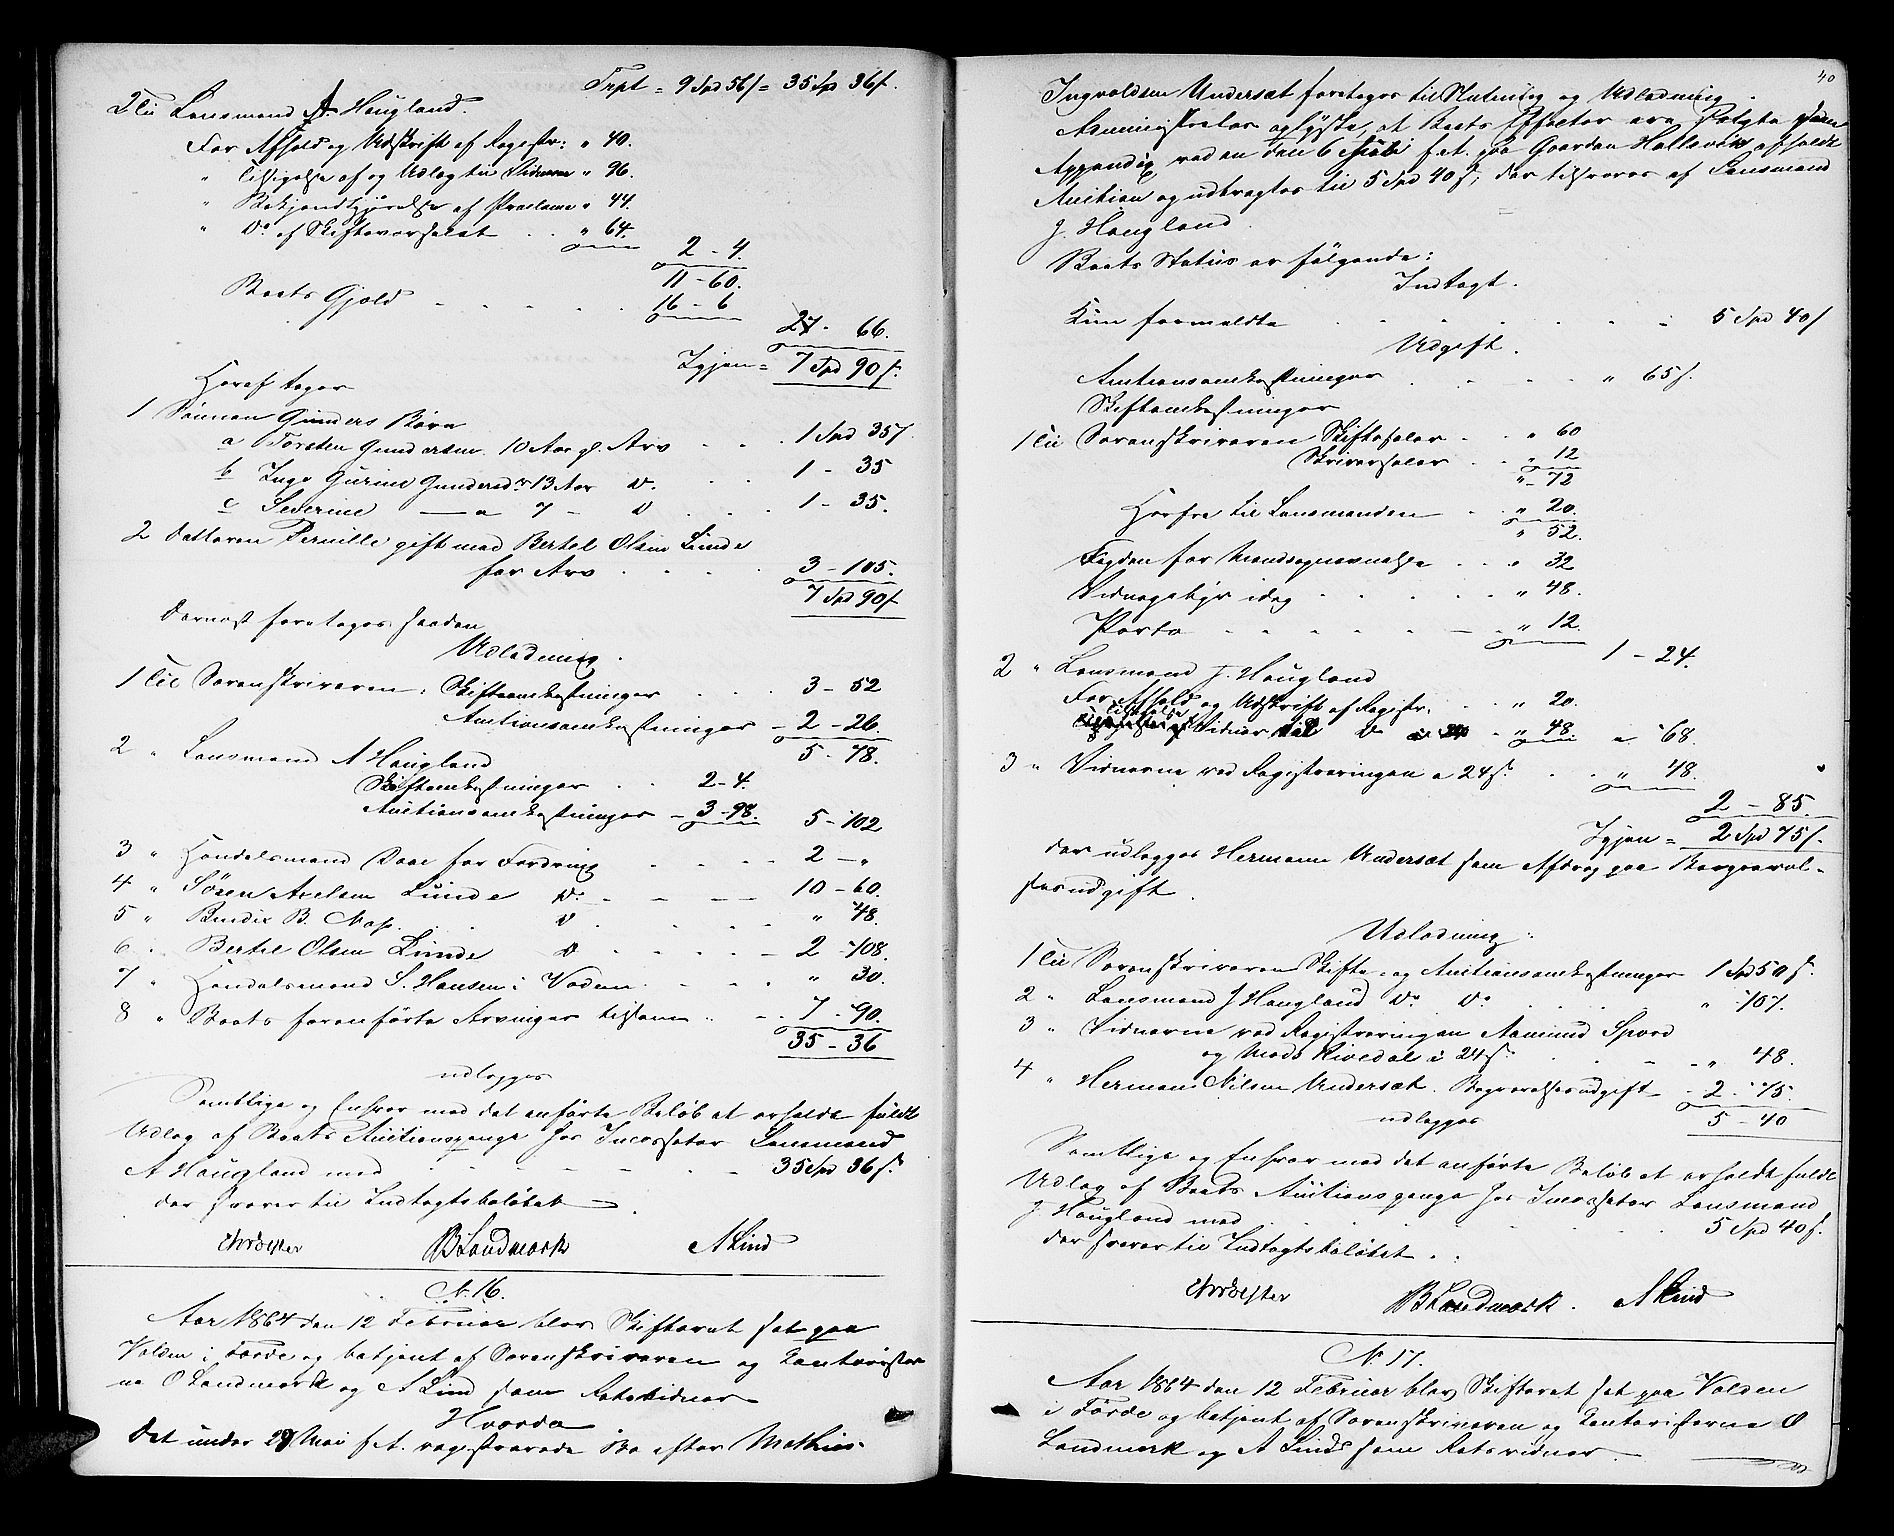 Trpt = 9 Spd 56 s = 35 Sp 36 s.
2 Til Lensmand A. Haugland.
For Afhold og Udskrift af Registr: " 40.
" Tilsigelse af og Udlæg til Vidnerne " 96.
" Bekjendtgjørelse af Proclama " 44.
" Do. af Skifteværfaldet . . " 64.
2 - 4.
11 - 60.
Boets Gjæld - - - - - 16 - 6
27 - 66.
Igjen = 7 Spd 90 s.
Heraf tager
1 Sønnen Gunders Børn
a Torsten Gundersen 10 Aar gl. Arv . . . 1 Spd 35 s.
b Inge Gurine Gundersdr 13 Aar Do. . . 1 - 35
c Severine — a 7 - Do . . . 1 - 35.
2 Datteren Pernille gift med Bertel Olsen Lunde
for Arv . . . . 3 - 105.
7 Spd 90 s
Dernæst foretoges saadan
Udlodning.
1 Til Sorenskriveren: Skifteomkostninger . . . 3 - 52
Auctionsomkostninger - 2 - 26.
5 - 78.
2 " Lensmand A Haugland
Skifteomkostninger . . 2 - 4.
Auctionsomkostninger - 3 - 98. 5 - 102
3 " Handelsmand Daae for Fordring - - - - 2 - "
4 " Søren Axelsen Lunde Do. - - - 10 - 60.
5 " Bendix B. Næss . . . Do . . . . " 48.
6 " Bertel Olsen Lunde Do - - - - 2 - 108.
7 " Handelsmand S. Hansen i Vadem. - - - " 30.
8 " Boets foranførte Arvinger tilsam . . - . 7 - 90.
35 - 36
udlægges
Samtlige og Enhver med det anførte Beløb at erholde fuldt
Udlæg af Boets Auctionspenge hos Incassator Lensmand
A Haugland med - - - - - 35 Spd 36 s.
der svarer til Indtægtsbeløbet — .
BLandmark ALind
No 16.
Aar 1864 den 12 Februar blev Skifteret sat paa
Volden i Førde og betjent af Sorenskriveren og Kontorister-
ne O Landmark og A Lind som Retsvidner
Hvorda
Det under 28 Mai f. A. registrerede Bo efter Mathias
40
Ingvoldsen Undersæt foretoges til Slutning og Udlodning.
Administrator oplyste, at Boets Effecter ere solgte som
Appendix ved en den 6 Juli f. A. paa Gaarden Hallevik afholdt
Auction og udbragtes til 5 Spd 40 s; der tilsvares af Lensmand
J. Haugland.
Boets Status er følgende:
Indtægt.
Kun formeldte . . . . . . . 5 Spd 40 s
Udgift.
Auctionsomkostninger . - - - " 65 s.
Skifteomkostninger
1 Til Sorenskriveren Skiftesalær . . " 60
Skriversalær . . " 12
" - 72
Herfra til Lensmanden . . " 20.
" 52.
Fogden for Mandsopnævnelse . . . " 32
Vidnegebyr idag . . . . . " 48.
Porto - - - - - - - " 12.
1 - 24.
2 " Lensmand J. Haugland
For Afhold og Udskrift af Registr. . . " 20.
tilsigelse Vidner - " 48. " 68.
3 " Vidnerne ved Registreringen a 24 s. . . " 48.
2 - 85.
Igjen = 2 Spd 75 s.
der udlægges Hermann Undersæt som Afdrag paa Begravel-
sesudgift.
Udlodning:
1 Til Sorenskriveren Skifte- og Auctionsomkostninger 1 Spd 50 s.
2 " Lensmand J Haugland Do. Do. . . . . . " 107.
3 " Vidnerne ved Registreringen Aamund
og Mads Rivedal a 24 s. . . - - " 48.
4 " Hermann Nilsen Undersæt. Begravelsesudgift - 2 - 75.
udlægges 5 - 40
Samtlige og Enhver med det anførte Beløb at erholdt fuldt
Udlæg af Boets Auctionspenge hos Incassator Lensmand
J. Haugland med . . . . . . . 5 Spd 40 s.
der svarer til Indtægtsbeløbet . :
BLandmark. ALind
No 17.
Aar 1864 den 12 Februar blev Skifteret sat paa Volden
i Førde og betjent af Sorenskriveren og Kontoristerne O
Landmark og A Lind som Retsvidner.